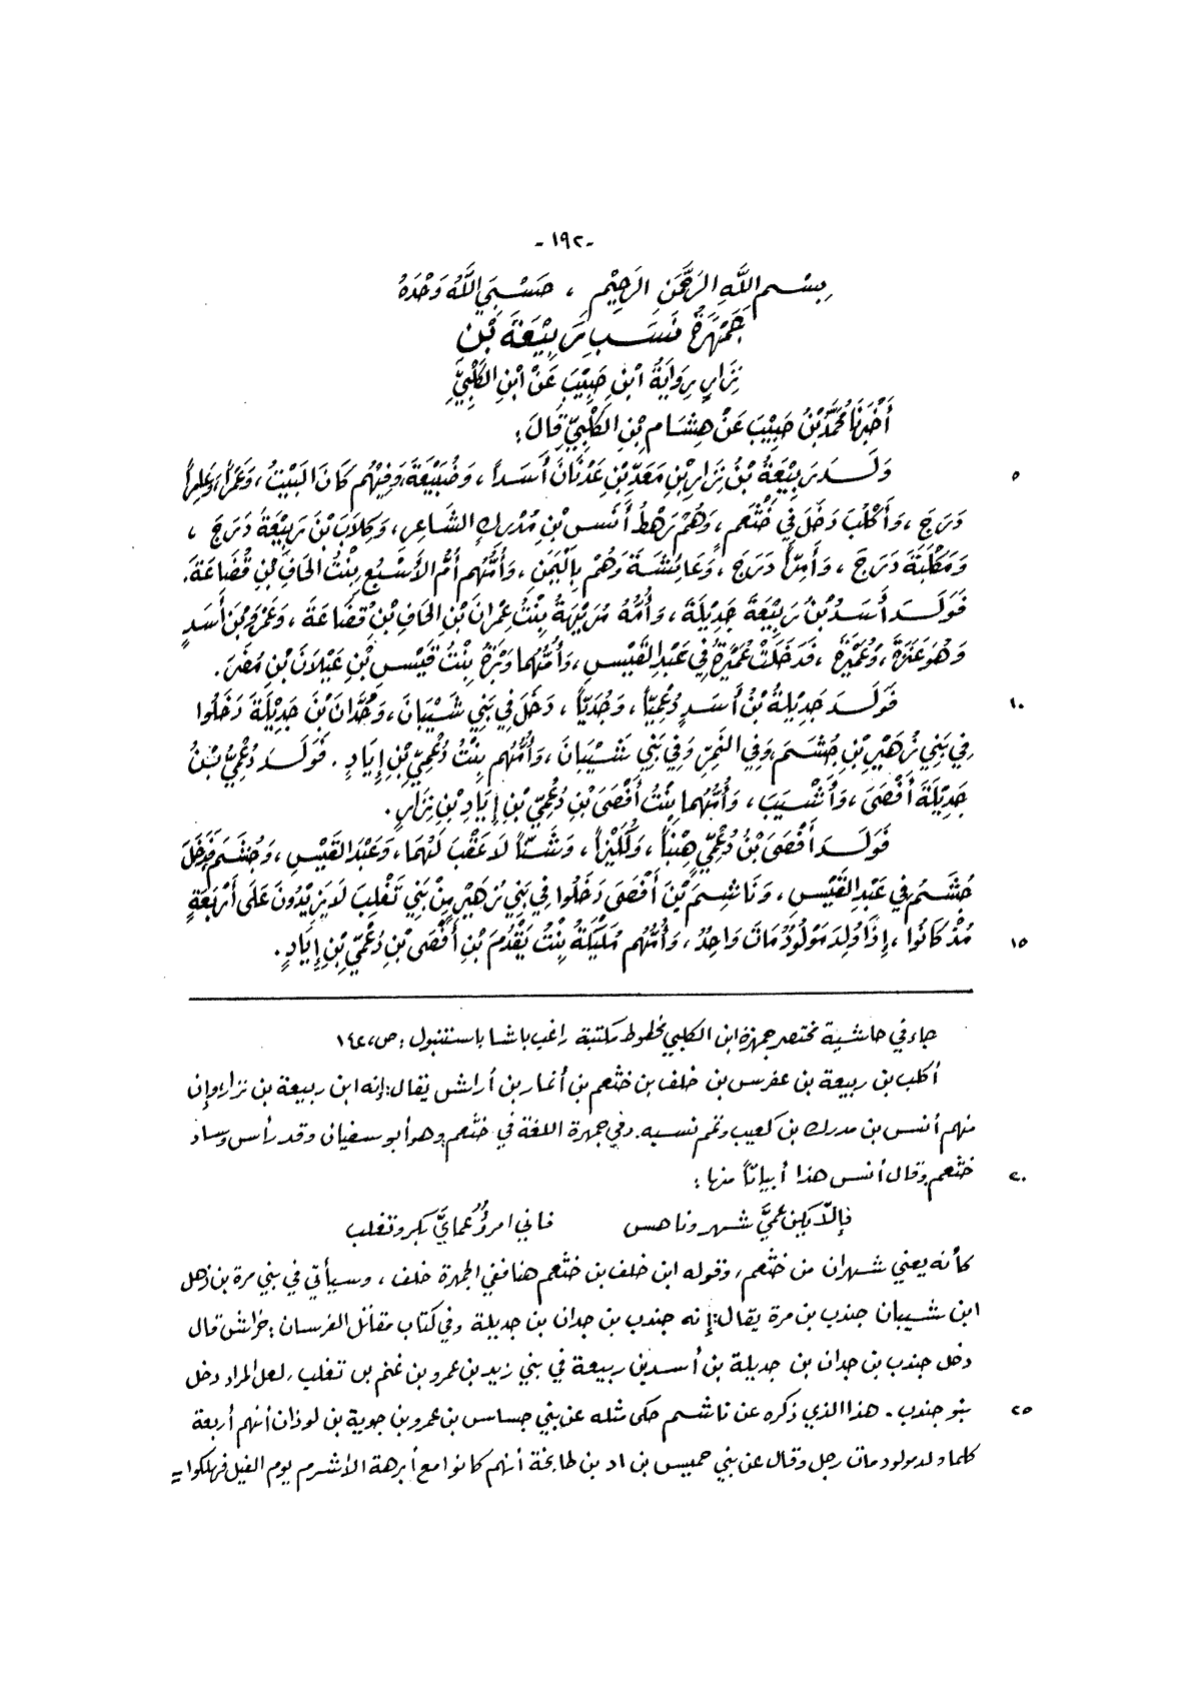 -١٩٢-
بِسْمِ اللَّهِ الرَّحْمَنِ الرَّحِيْمِ ، حَسْبِيَ اللَّهُ وَحْدَهُ
جَمْهَرَةُ نَسَبِ رَبِيْعَةَ بْنِ
نِزَارٍ رِوَايَةُ ابْنِ حَبِيْبَ عَنْ ابْنِ الكَلْبِيِّ
أَخْبَرَنَا مُحَمَّدُ بْنُ حَبِيْبَ عَنْ هِشَامِ بْنِ الكَلْبِيِّ قَالَ:
وَلَدَ رَبِيْعَةُ بْنُ نِزَارِ بْنِ مَعَدِّ بْنِ عَدْنَانَ أَسَداً ، وَضُبَيْعَةَ، وَفِيْهُم كَانَ البَيْتُ ، وَعَمْراً، وَعَامِراً ٥
دَرَجَ ، وَأَكْلُبَ دَخَلَ فِي خَثْعَمٍ ، وَهُمْ رَهْطُ أَنَسِ بْنِ مُدْرِكٍ الشَّاعِرِ ، وَكِلَابَ بْنَ رَبِيْعَةَ دَرَجَ ،
وَمَكْلَبَةَ دَرَجَ ، وَأَمِرّاً دَرَجَ ، وَعَائِشَةَ وَهُمْ بِاليَمَنِ ، وَأُمُّهُم أُمُّ الأَسْبُعِ بِنْتُ الحَافِ بْنِ قُضَاعَةَ.
فَوَلَدَ أَسَدُ بْنُ رَبِيْعَةَ جَدِيْلَةَ ، وَأُمُّهُ مُزَيْهَةُ بِنْتُ عِمْرَانَ بْنِ الحَافِ بْنِ قُضَاعَةَ ، وَعَمْرَو بْنَ أَسَدٍ
وَهُوَ عَنَزَةُ ، وَعُمَيْرَةَ ، فَدَخَلَتْ عُمَيْرَةُ فِي عَبْدِ القَيْسِ ، وَأُمُّهُمَا وَبَرَةُ بِنْتُ قَيْسِ بْنِ عَيْلَانَ بْنِ مُضَرَ .
فَوَلَدَ جَدِيْلَةُ بْنُ أَسَدٍ دُعْمِيّاً ، وَجُدَيّاً ، دَخَلَ فِي بَنِي شَيْبَانَ ، وَجُدَّانَ بْنَ جَدِيْلَةَ دَخَلُوا ١٠
فِي بَنِي زُهَيْرِ بْنِ جُشَمَ، وَفِي النَّمِرِ وَفِي بَنِي شَيْبَانَ ، وَأُمُّهُم بِنْتُ دُعْمِيِّ بْنِ إِيَادٍ . فَوَلَدَ دُعْمِيُّ بْنُ
جَدِيْلَةَ أَفْصَى ، وَأَشْيَبَ ، وَأُمُّهُمَا بِنْتُ أَفْصَى بْنِ دُعْمِيِّ بْنِ إِيَادِ بْنِ نِزَارٍ .
فَوَلَدَ أَفْصَى بْنُ دُعْمِيٍّ هِنْباً ، وَلُكَيْزاً ، وَشَنّاً لَا عَقْبَ لَهُمَا ، وَعَبْدَ القَيْسِ ، وَجُشَمَ فَدَخَلَ
جُشَمُ فِي عَبْدِ القَيْسِ ، وَنَاشِمَ بْنَ أَفْصَى دَخَلُوا فِي بَنِي زُهَيْرٍ مِنْ بَنِي تَغْلِبَ لَا يَزِيْدُونَ عَلَى أَرْبَعَةٍ
مُذْ كَانُوا ، إِذَا وُلِدَ مَوْلُوْدٌ مَاتَ وَاحِدٌ ، وَأُمُّهُم مُلَيْكَةُ بِنْتُ يَقْدُمَ بْنِ أَفْصَى بْنِ دُعْمِيِّ بْنِ إِيَادٍ . ١٥
جاء في حاشية مختصر جمهرة ابن الكلبي مخطوط مكتبة راغب باشا باستنبول : ص، ١٤٧
أكلب بن ربيعة بن عفرس بن خلف بن خثعم بن أنمار بن أراش يقال: إنه ابن ربيعة بن نزار، وإن
منهم أنس بن مدرك بن كعيب وتم نسبه . وفي جمهرة اللغة في خثعم، وهو أبو سفيان وقد رأس وساد
خثعم، وقال أنس هذا أبياتاً منها : ٢٠
فإلّا يكن عميَّ شهر وناهس فاني امرؤٌ عمايَّ بكر وتغلب
كأنه يعني شهران من خثعم، وقوله ابن خلف بن خثعم هنا ففي الجمهرة خلف ، وسيأتي في بني مرة بن ذهل
ابن شيبان جندب بن مرة يقال: إنه جندب بن جدان بن جديلة وفي كتاب مقاتل الفرسان : خراش قال
دخل جندب بن جدان بن جديلة بن أسد بن ربيعة في بني زيد بن عمرو بن غنم بن تغلب ، لعل المراد دخل
بنو جندب . هذا الذي ذكره عن ناشم حكى مثله عن بني جساس بن عمرو بن جوية بن لوذان أنهم أربعة ٢٥
كلما ولد مولود مات رجل وقال عن بني حميس بن اد بن طابخة أنهم كانوا مع أبرهة الأشرم يوم الفيل فهلكوا =